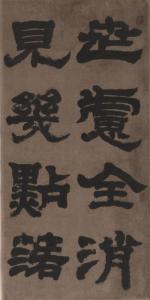 世慮全消
見幾點落